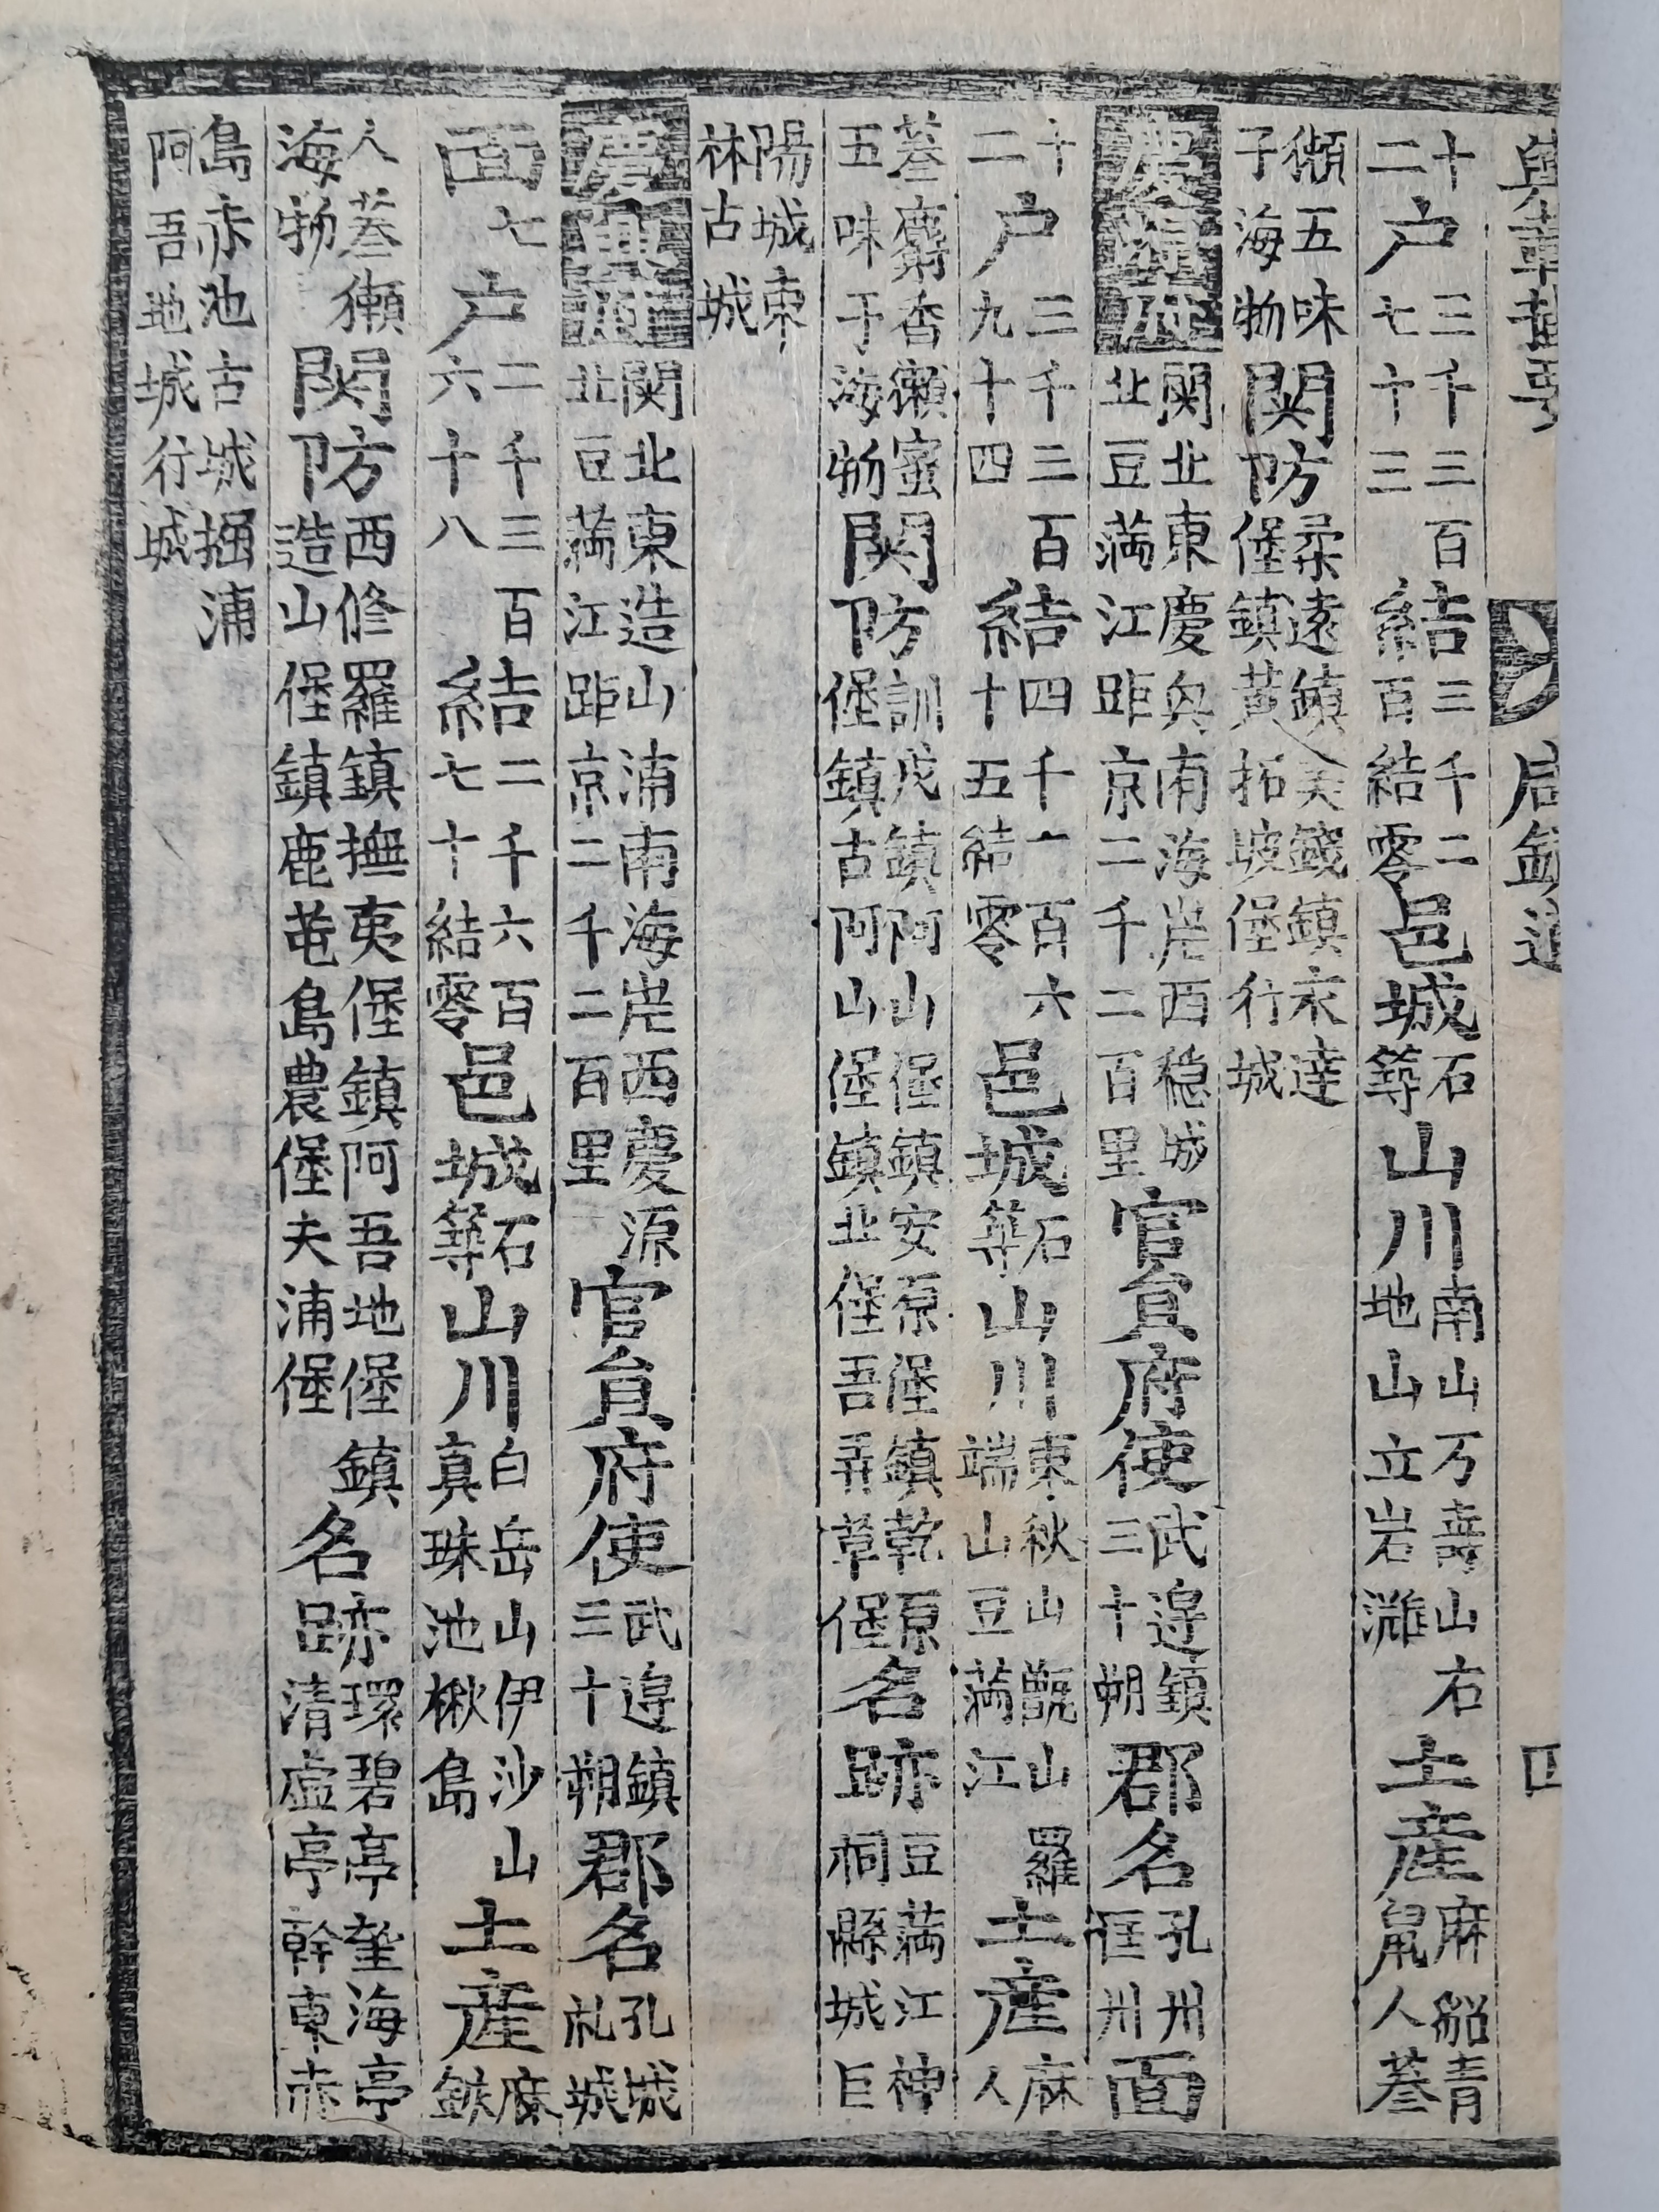 輿載撮要 咸鏡道 四
十二户三千三百七十三結三千二百結零邑城石築山川南山万壽山右地山立岩灘土産麻貂青鼠人蔘
獺五味子海物関防柔遠鎮美錢鎮永達堡鎮黄拓坡堡行城
慶源府関北東慶興南海岸西穏城北豆満江距京二千二百里官員府使武邉鎮三十朔郡名孔州匡州面
十二户三千三百九十四結四千一百六十五結零邑城石築山川東秋山甑山羅端山豆満江土産麻人
蔘麝香獺蜜五味子海物関防訓戎鎮阿山堡鎮安原堡鎮乾原堡鎮古阿山堡鎮北堡吾弄草堡名跡豆満江神祠縣城巨
陽城東林古城
慶興府関北東造山浦南海岸西慶源北豆満江距京二千二百里官員府使武邉鎮三十朔郡名孔城札城
面七户二千三百六十八結二千六百七十結零邑城石築山川白岳山伊沙山真珠池楸島土産麻鉄
人蔘獺海物関防西修羅鎮撫夷堡鎮阿吾地堡鎮造山堡鎮鹿芚島農堡夫浦堡名跡環碧亭奎海亭清虚亭幹東赤
島赤池古城掘浦阿吾地城行城